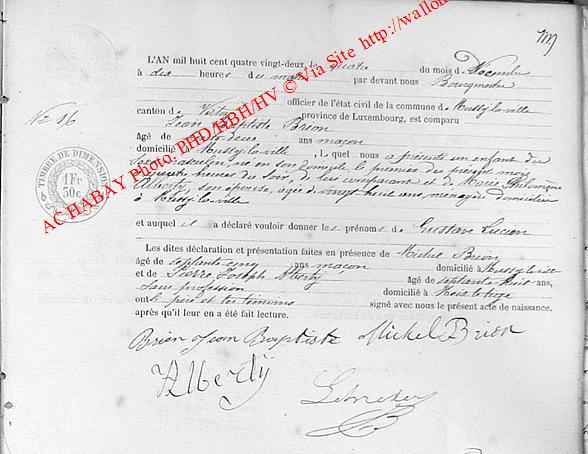 L'AN mil huit cent quatre vingt-deux, le quatre du mois de Décembre
à dix heures du matin par devant nous Bourgmestre
officier de l'état civil de la commune de Mussy-la-ville
canton de Virton province de Luxembourg, est comparu
Jean Baptiste Brion
âgé de ans maçon
domicilié à Mussy-la-ville , L quel nous a présenté un enfant du
sexe masculin, né en son domicile le premier du présent mois
à quatre heures du soir, de lui comparant et de Marie Philomène
Alberty, son épouse, agée de vingt huit ans, ménagère domiciliée
à Mussy-la-ville
et auquel il a déclaré vouloir donner les prénoms de Gustave Lucien
Les dites déclaration et présentation faites en présence de Michel Brion
âgé de septante-cinq ans maçon domicilié à Mussy-la-ville
et de Pierre Joseph Alberty âgé de septante-huit ans,
sans profession domicilié à Meix-le-tige
ont le père et les témoins signé avec nous le présent acte de naissance,
après qu'il leur en a été fait lecture.
Brion Jean Baptiste Michel Brion
Alberty
N° 16
TIMBRE DE DIMENSION
1 Fr
30c
AC HABAY Photo, PHD/HBH/HV © Via Site http://www.wallo